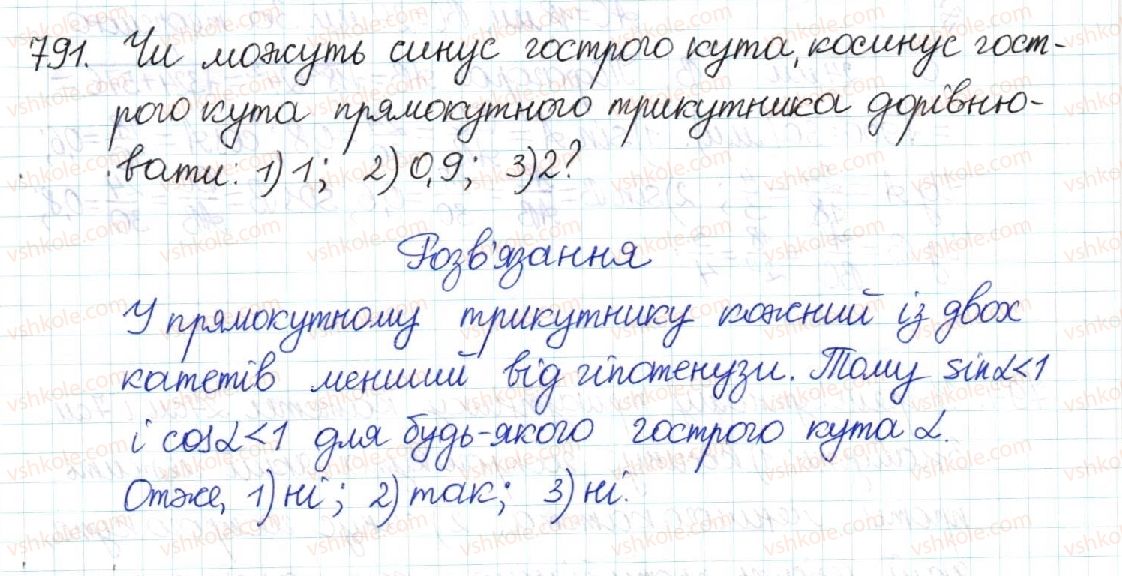 791. Чи можуть синус гострого кута, косинус гост-
рого кута прямокутного трикутника дорівню-
вати: 1) 1; 2) 0,9; 3) 2?
Розв'язання
У прямокутному трикутнику кожний із двох
катетів менший від гіпотенузи. Тому sinα<1
і cosα<1 для будь-якого гострого кута α.
Отже, 1) ні; 2) так; 3) ні.